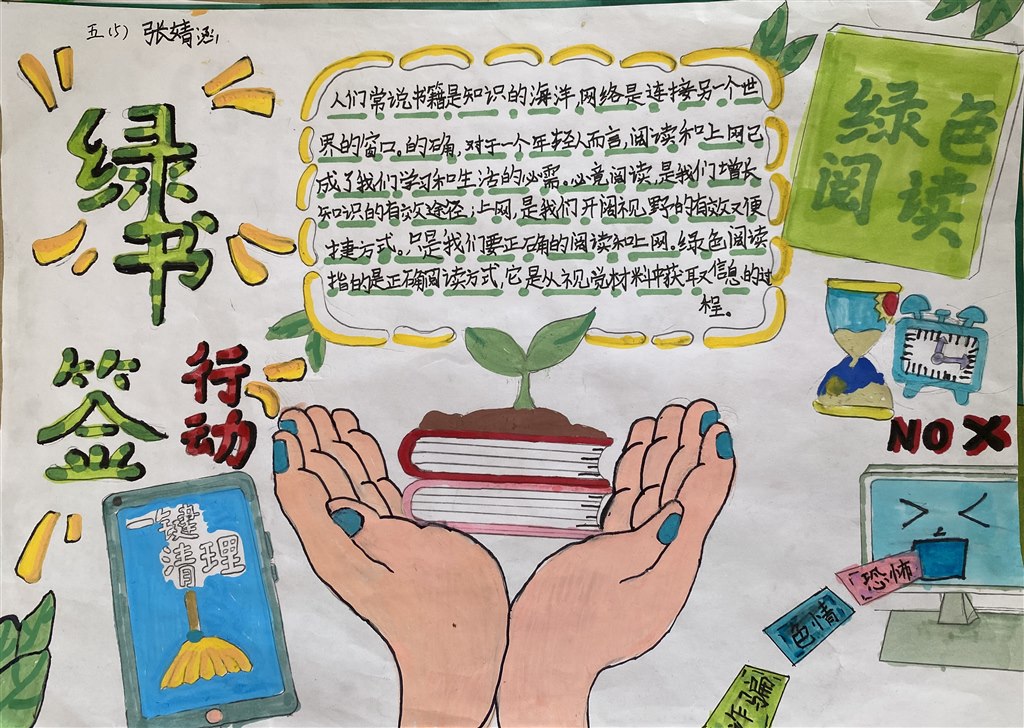 五(5) 张婧涵
绿书
签
行动
人们常说书籍是知识的海洋,网络是连接另一个世
界的窗口。的确,对于一个年轻人而言,阅读和上网已
成了我们学习和生活的必需。必竟阅读,是我们增长
知识的有效途径;上网,是我们开阔视野的有效又便
捷方式。只是我们要正确的阅读和上网。绿色阅读
指的是正确阅读方式,它是从视觉材料中获取信息的过
程。
绿色
阅读
NO X
一键
清理
恐怖
色情
诈骗